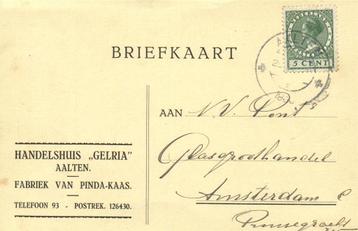 BRIEFKAART
5 CENT
AAN N.V. Pont
Glasgroothandel
Amsterdam C
Prinsegracht
HANDELSHUIS „GELRIA”
AALTEN.
FABRIEK VAN PINDA-KAAS.
TELEFOON 93 - POSTREK. 126430.